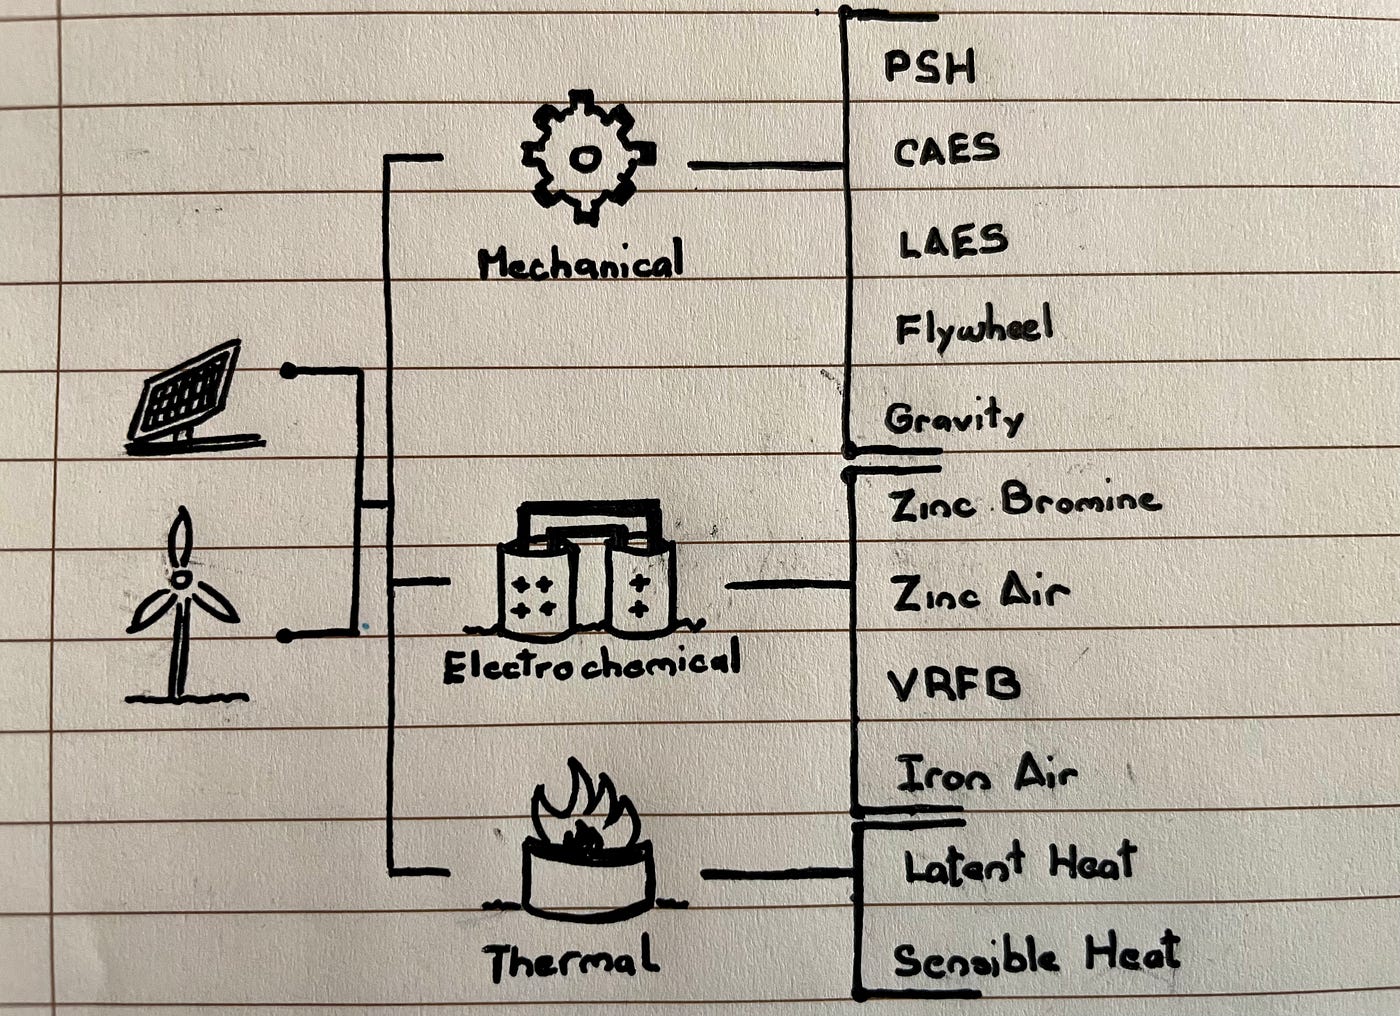 PSH
CAES
LAES
Flywheel
Gravity
Mechanical
Zinc Bromine
Zinc Air
VRFB
Iron Air
Electrochemical
Latent Heat
Sensible Heat
Thermal